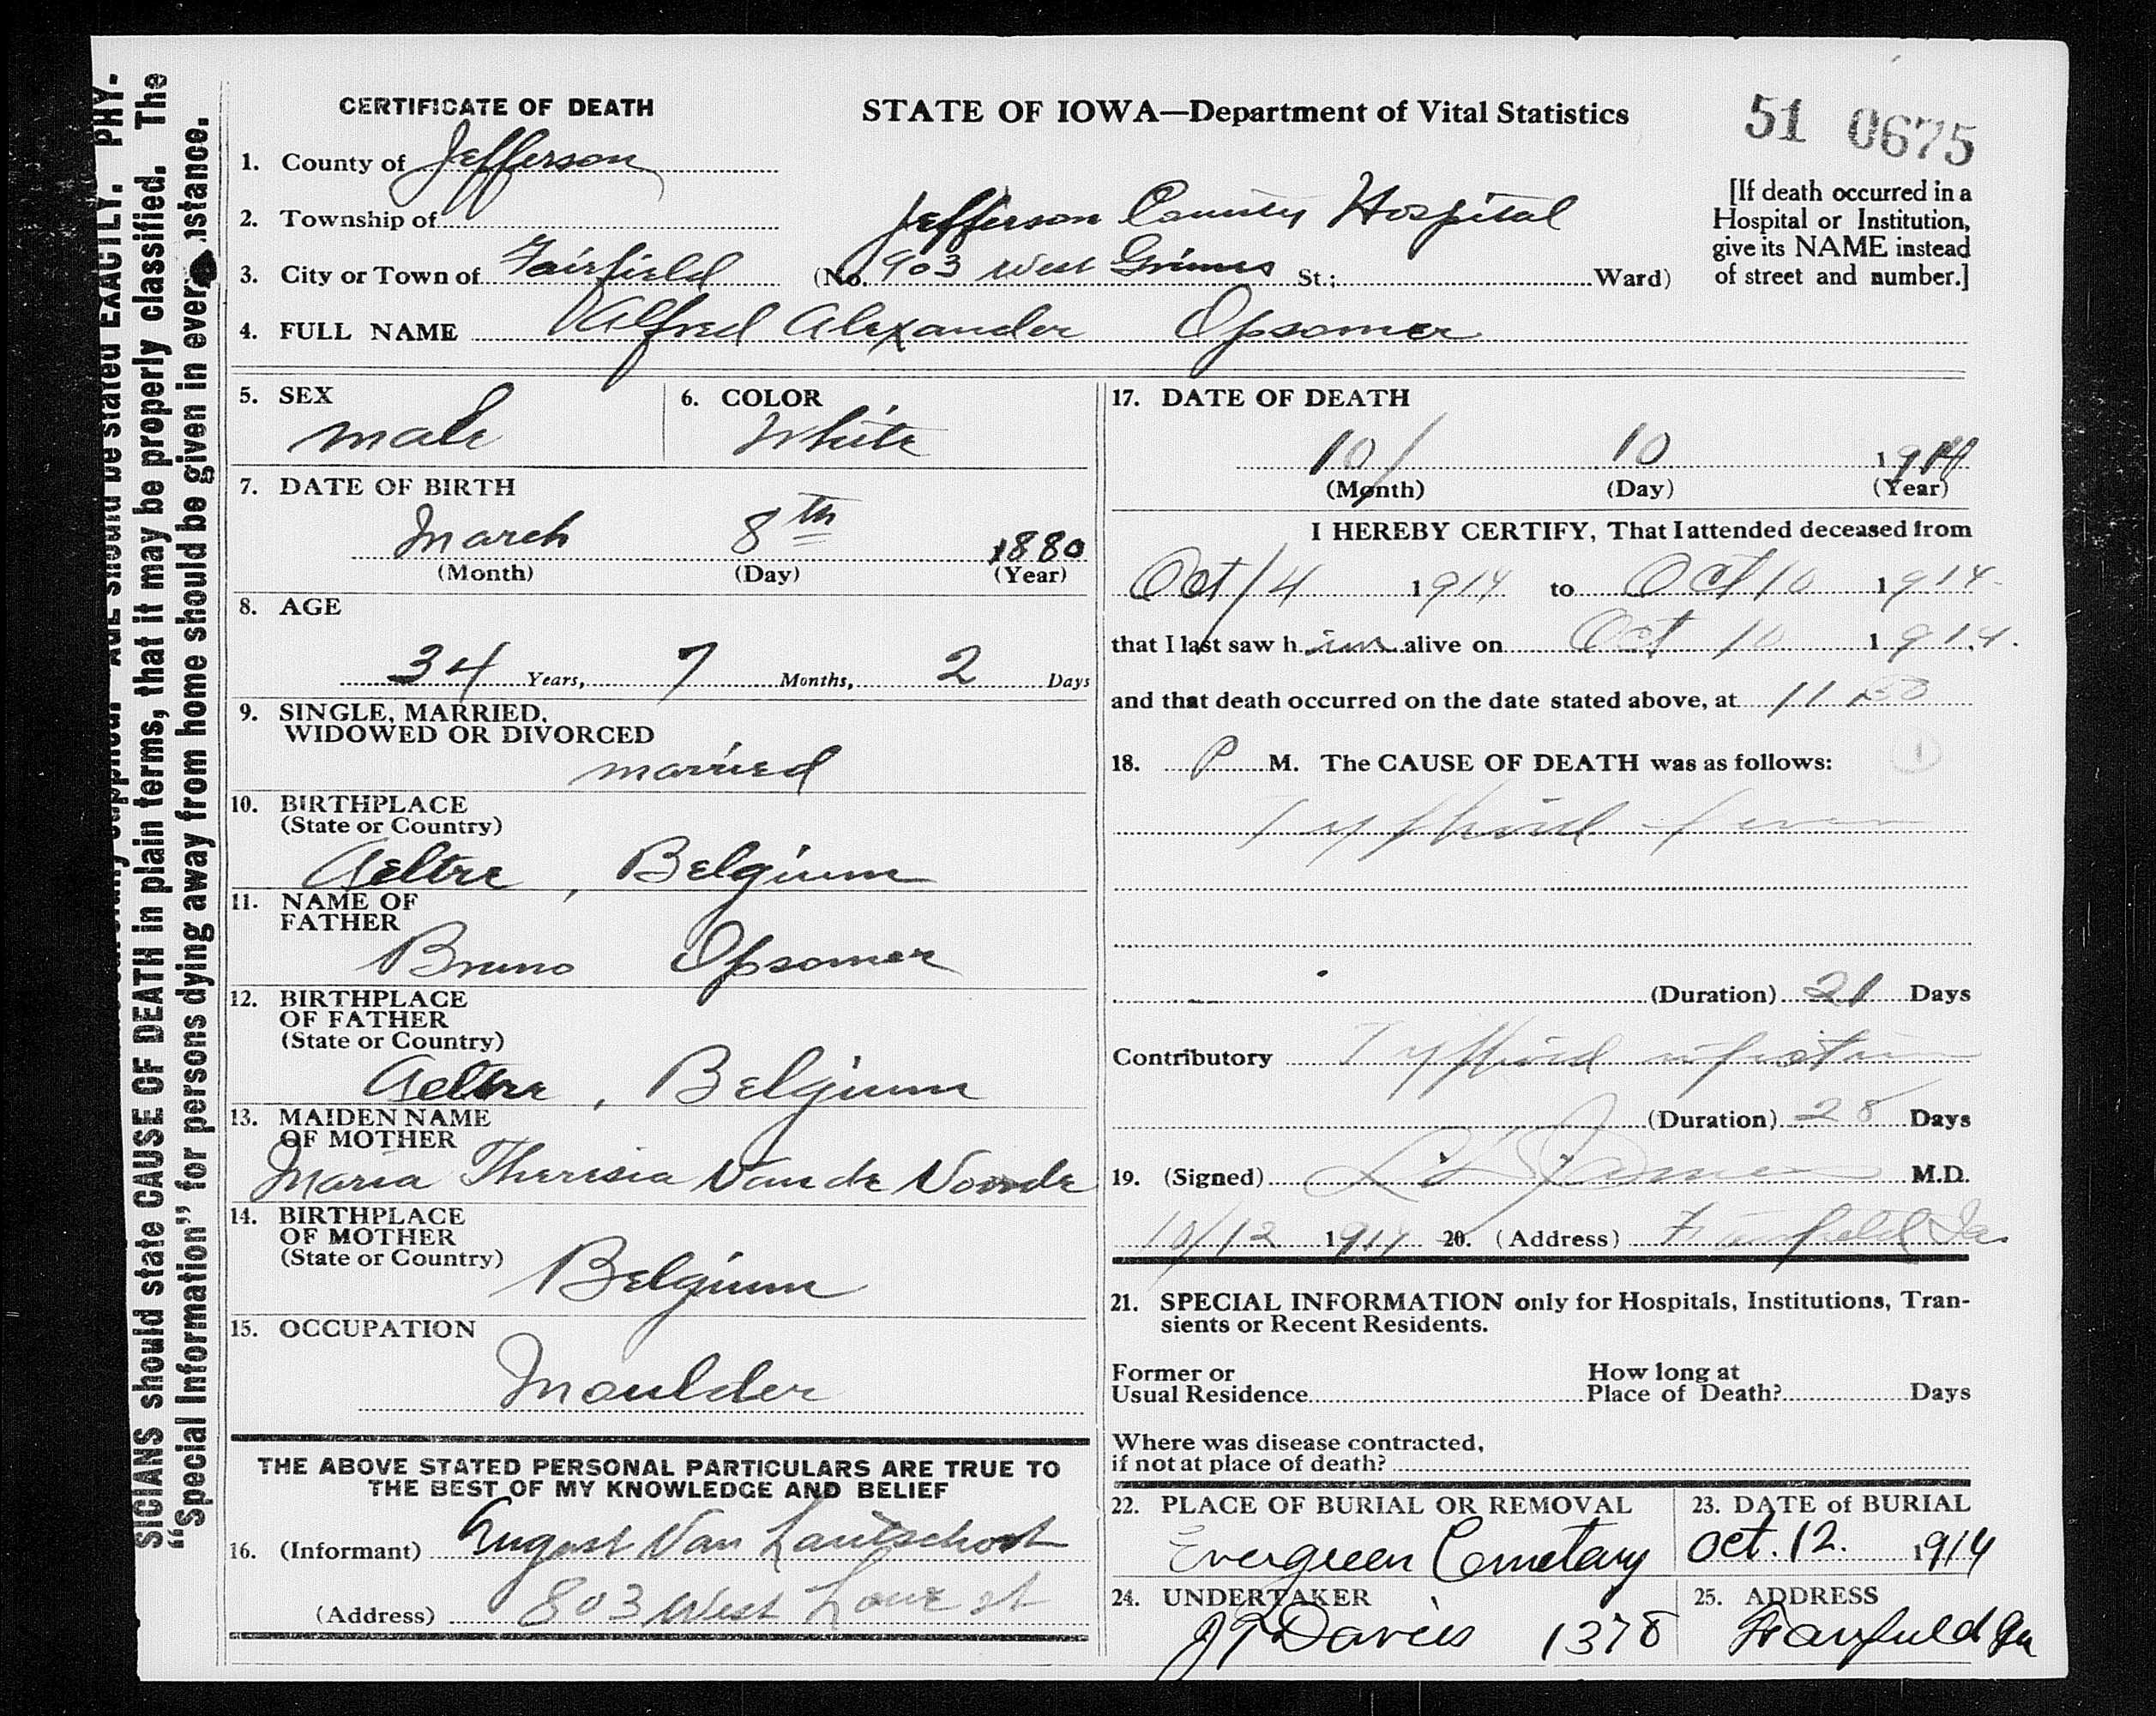 CERTIFICATE OF DEATH
STATE OF IOWA—Department of Vital Statistics
51 0675
1. County of Jefferson
2. Township of
Jefferson County Hospital
3. City or Town of Fairfield (No. 903 West Grimes St.; Ward)
[If death occurred in a
Hospital or Institution,
give its NAME instead
of street and number.]
4. FULL NAME Alfred Alexander Opsomer
5. SEX
male
6. COLOR
White
7. DATE OF BIRTH
March 8th 1880
(Month) (Day) (Year)
8. AGE
34 Years, 7 Months, 2 Days
9. SINGLE, MARRIED,
WIDOWED OR DIVORCED
married
10. BIRTHPLACE
(State or Country)
Aeltre, Belgium
11. NAME OF
FATHER
Bruno Opsomer
12. BIRTHPLACE
OF FATHER
(State or Country)
Aeltre, Belgium
13. MAIDEN NAME
OF MOTHER
Maria Theresia Van de Voorde
14. BIRTHPLACE
OF MOTHER
(State or Country)
Belgium
15. OCCUPATION
Moulder
THE ABOVE STATED PERSONAL PARTICULARS ARE TRUE TO
THE BEST OF MY KNOWLEDGE AND BELIEF
16. (Informant) August Van Lantschoot
(Address) 803 West Lowe st
17. DATE OF DEATH
10/ 10 1914
(Month) (Day) (Year)
I HEREBY CERTIFY, That I attended deceased from
Oct/4 1914 to Oct 10 1914
that I last saw him alive on Oct 10 1914.
and that death occurred on the date stated above, at 11 50
18. P M. The CAUSE OF DEATH was as follows:
1
Typhoid fever
(Duration) 21 Days
Contributory Typhoid infection
(Duration) 28 Days
19. (Signed) James M.D.
10/12 1914 20. (Address) Fairfield Ia
21. SPECIAL INFORMATION only for Hospitals, Institutions, Tran-
sients or Recent Residents.
Former or
Usual Residence
How long at
Place of Death? Days
Where was disease contracted,
if not at place of death?
22. PLACE OF BURIAL OR REMOVAL
Evergreen Cemetary
23. DATE of BURIAL
Oct. 12. 1914
24. UNDERTAKER
J T Davies 1378
25. ADDRESS
Fairfield Ia
AGE should be stated EXACTLY. PHY-
SICIANS should state CAUSE OF DEATH in plain terms, that it may be properly classified. The
"Special Information" for persons dying away from home should be given in every instance.